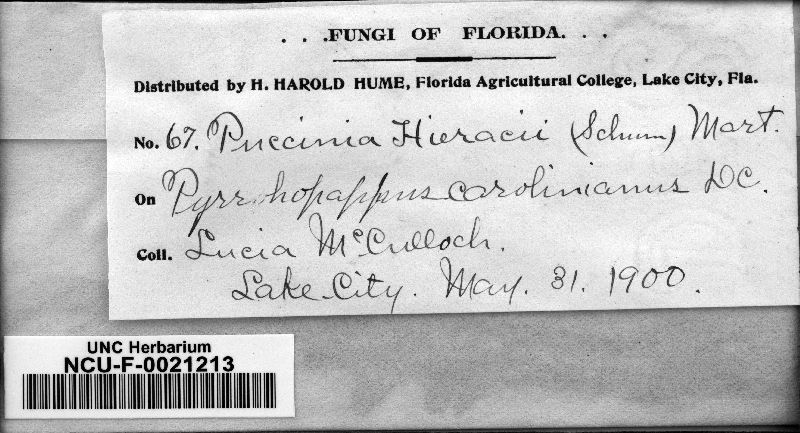 . . .FUNGI OF FLORIDA. . .
Distributed by H. HAROLD HUME, Florida Agricultural College, Lake City, Fla.
No. 67. Puccinia Hieracii (Schum) Mart.
On Pyrrhopappus carolinianus DC.
Coll. Lucia McCulloch.
Lake City. May. 31. 1900.
UNC Herbarium
NCU-F-0021213